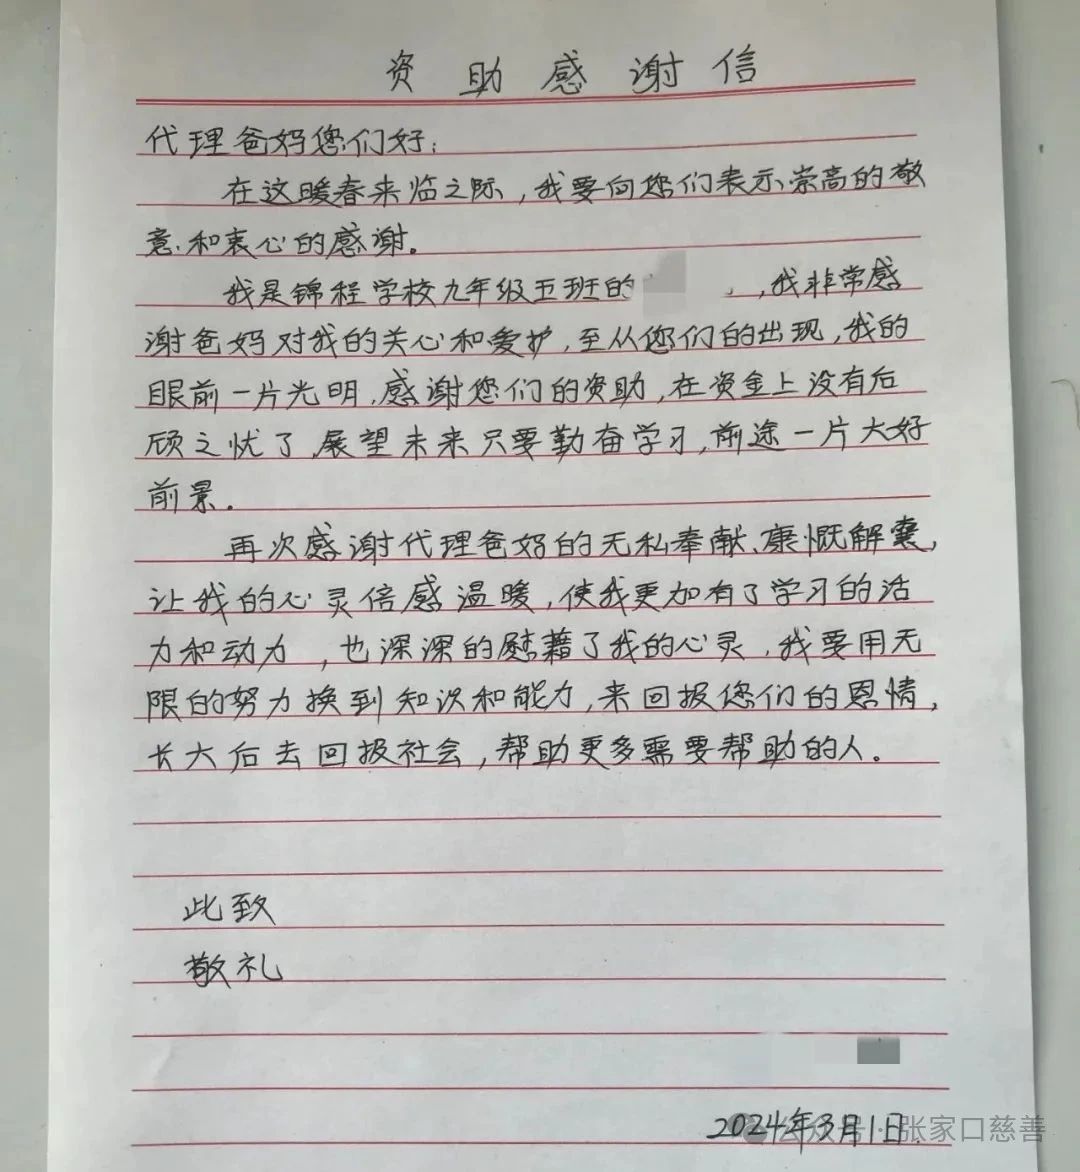 资助感谢信
代理爸妈您们好:
在这暖春来临之际,我要向您们表示崇高的敬
意和衷心的感谢。
我是锦程学校九年级五班的 ,我非常感
谢爸妈对我的关心和爱护,至从您们的出现,我的
眼前一片光明,感谢您们的资助,在资金上没有后
顾之忧了,展望未来只要勤奋学习,前途一片大好
前景。
再次感谢代理爸妈的无私奉献、康慨解囊,
让我的心灵倍感温暖,使我更加有了学习的活
力和动力,也深深的慰藉了我的心灵,我要用无
限的努力换到知识和能力,来回报您们的恩情,
长大后去回报社会,帮助更多需要帮助的人。
此致
敬礼
2024年3月1日
公众号·张家口慈善